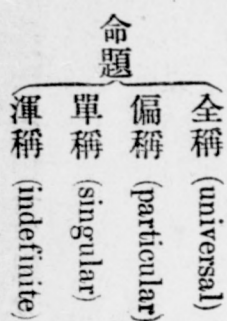 命題
全稱 (universal)
偏稱 (particular)
單稱 (singular)
渾稱 (indefinite)